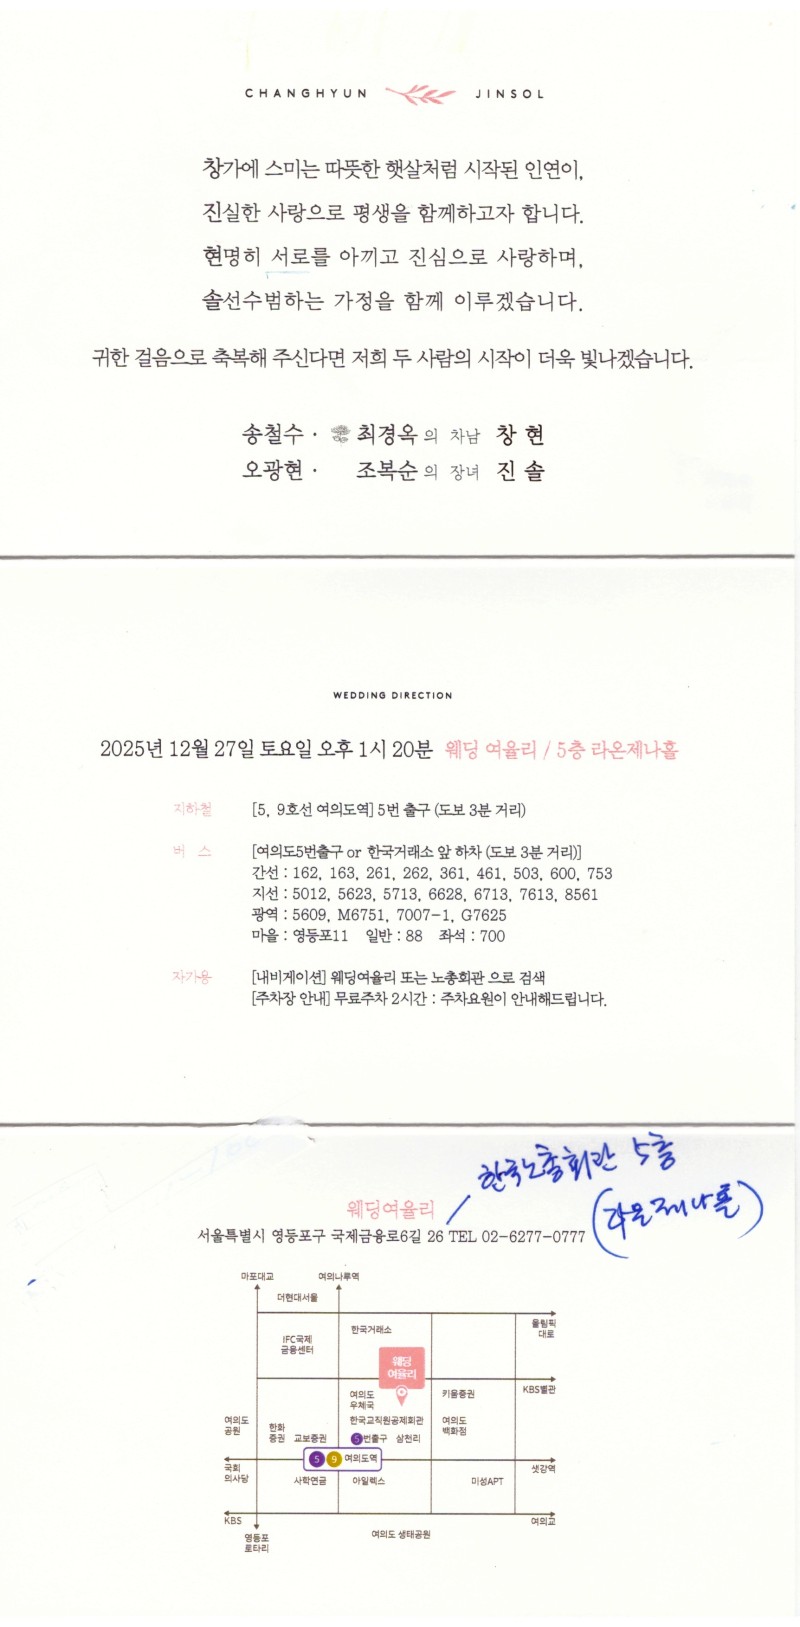 CHANGHYUN JINSOL
창가에 스미는 따뜻한 햇살처럼 시작된 인연이,
진실한 사랑으로 평생을 함께하고자 합니다.
현명히 서로를 아끼고 진심으로 사랑하며,
솔선수범하는 가정을 함께 이루겠습니다.
귀한 걸음으로 축복해 주신다면 저희 두 사람의 시작이 더욱 빛나겠습니다.
송철수 · 최경옥 의 차남 창 현
오광현 · 조복순 의 장녀 진 솔
WEDDING DIRECTION
2025년 12월 27일 토요일 오후 1시 20분 웨딩 여율리 / 5층 라온제나홀
지하철 [5, 9호선 여의도역] 5번 출구 (도보 3분 거리)
버 스 [여의도5번출구 or 한국거래소 앞 하차 (도보 3분 거리)]
간선 : 162, 163, 261, 262, 361, 461, 503, 600, 753
지선 : 5012, 5623, 5713, 6628, 6713, 7613, 8561
광역 : 5609, M6751, 7007-1, G7625
마을 : 영등포11 일반 : 88 좌석 : 700
자가용 [내비게이션] 웨딩여율리 또는 노총회관 으로 검색
[주차장 안내] 무료주차 2시간 : 주차요원이 안내해드립니다.
한국노총회관 5층
(라온제나홀)
웨딩여율리
서울특별시 영등포구 국제금융로6길 26 TEL 02-6277-0777
마포대교 여의나루역
더현대서울
올림픽
대로
한국거래소
IFC국제
금융센터
웨딩
여율리
KBS별관
여의도
우체국
키움증권
여의도
공원
한화
증권
교보증권
한국교직원공제회관
5번출구 삼천리
여의도
백화점
5 9 여의도역
국회
의사당
샛강역
사학연금 아일렉스 미성APT
KBS 여의교
여의도 생태공원
영등포
로타리